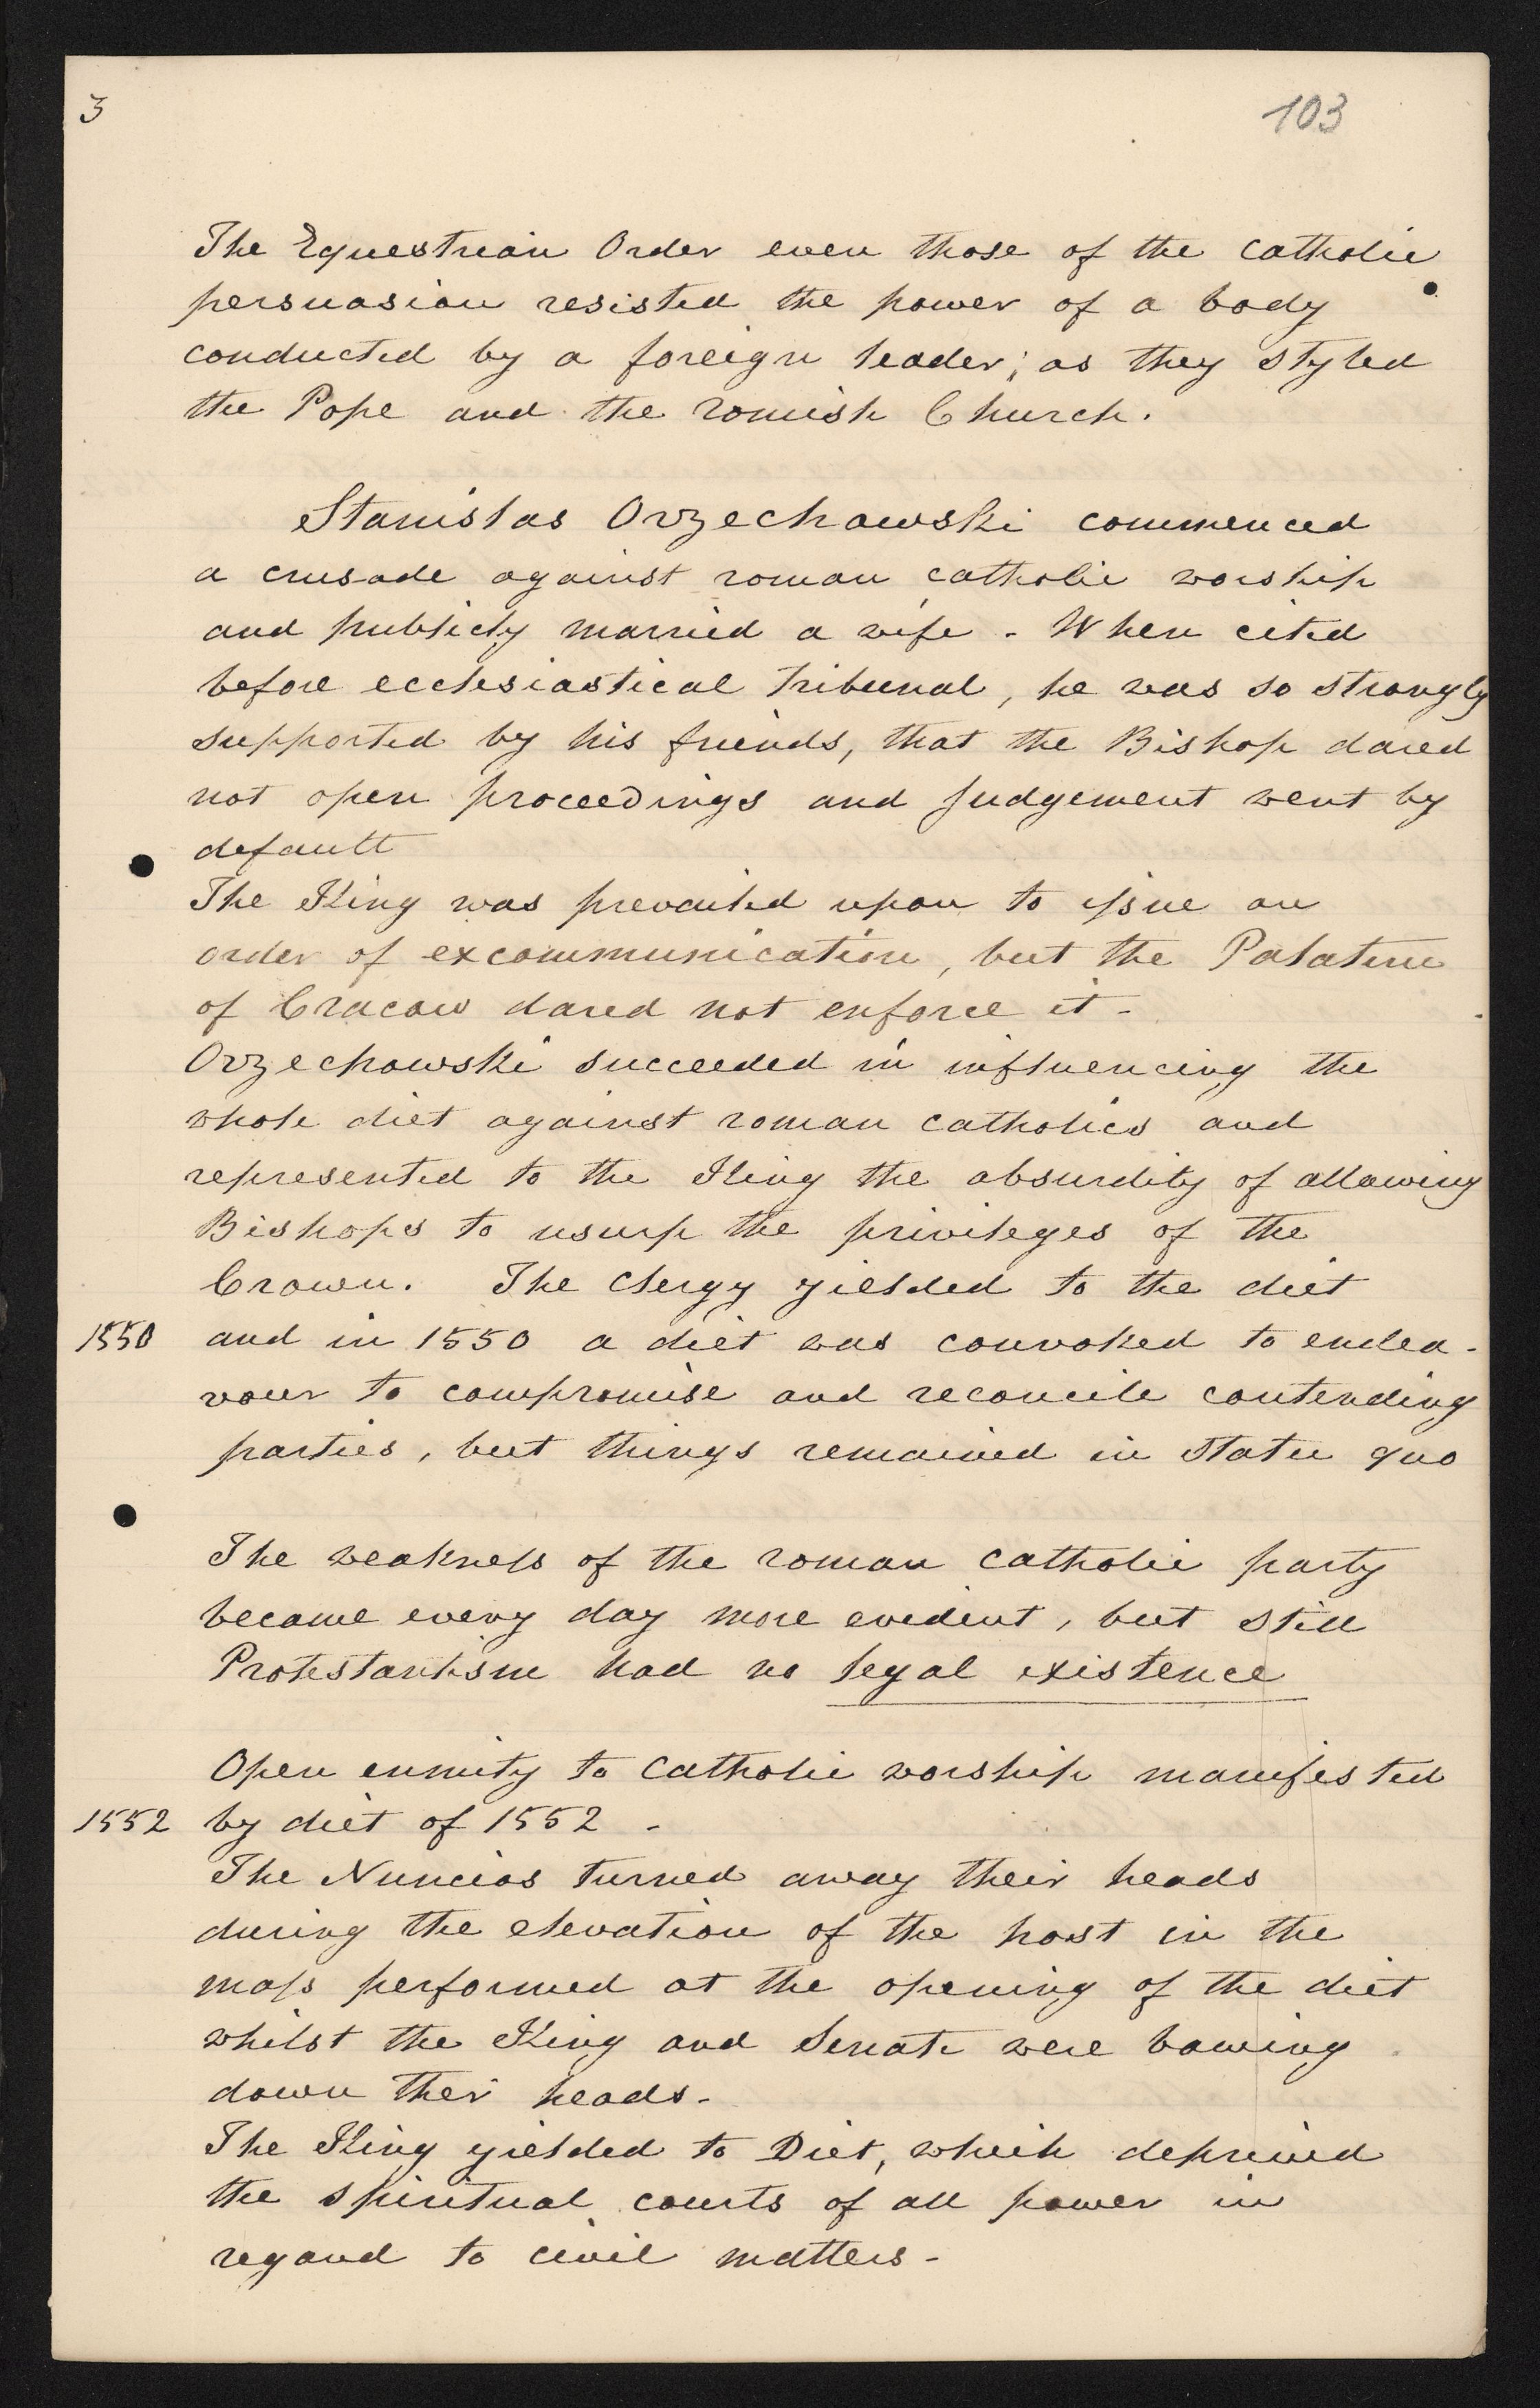 3
103
The Equestrian Order even those of the catholic
persuasion resisted the power of a body
conducted by a foreign leader; as they styled
the Pope and the romish Church.
Stanislas Orzechowski commenced
a crusade against roman catholic worship
and publicly married a wife - When cited
before ecclesiastical Tribunal, he was so strongly
supported by his friends, that the Bishop dared
not open proceedings and judgement went by
default
The King was prevailed upon to issue an
order of excommunication, but the Palatine
of Cracow dared not enforce it -
Orzechowski succeeded in influencing the
whole diet against roman catholics and
represented to the King the absurdity of allowing
Bishops to usurp the privileges of the
Crown. The Clergy yielded to the diet
1550 and in 1550 a diet was convoked to endea-
vour to compromise and reconcile contending
parties, but things remained in statu quo
The weakness of the roman catholic party
became every day more evident, but still
Protestantism had no legal existence
Open enmity to Catholic worship manifested
1552 by diet of 1552 -
The Nuncios turned away their heads
during the elevation of the host in the
mass performed at the opening of the diet
whilst the King and Senate were bowing
down their heads -
The King yielded to Diet, which deprived
the spiritual courts of all power in
regard to civil matters -